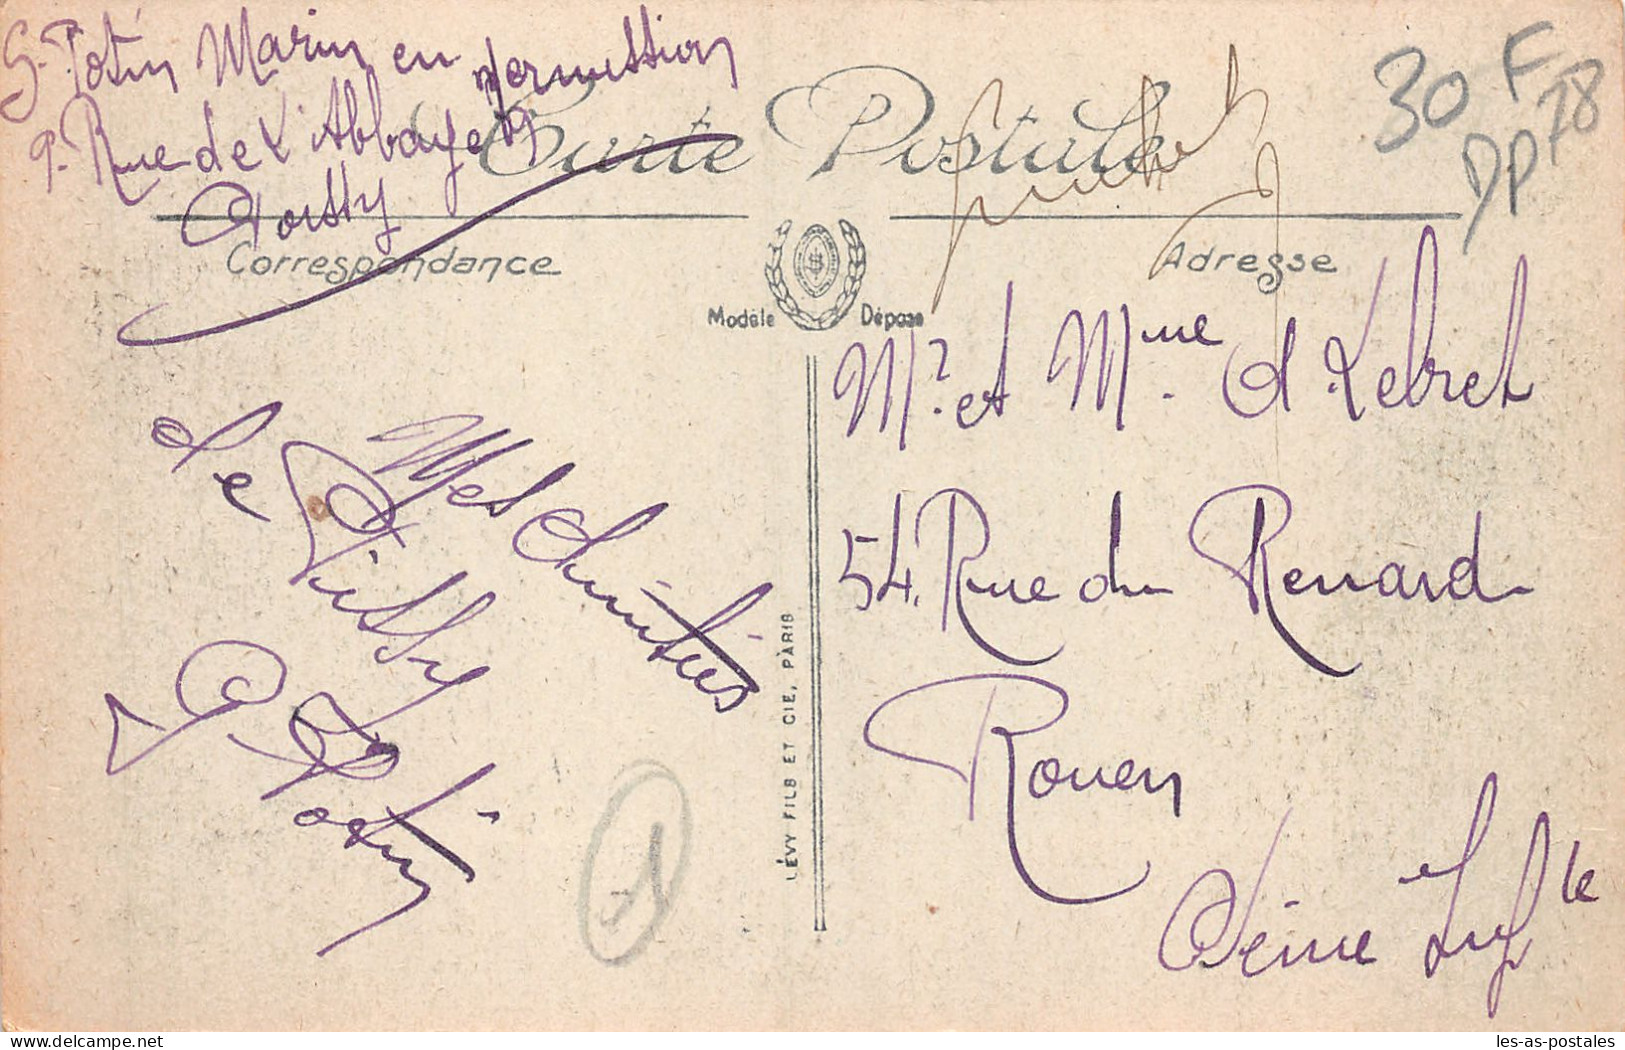 G. Potin Marin en permission
9. Rue de L'Abbaye
Poissy
Carte Postale
30 F
DP 78
Correspondance
Adresse
Modèle Déposé
Mr. et Mme. A Lebret
54. Rue du Renard
Rouen
Seine Infle
Mes Amitiés
de Poissy
G. Potin
LÉVY FILS ET CIE, PARIS
les-as-postales